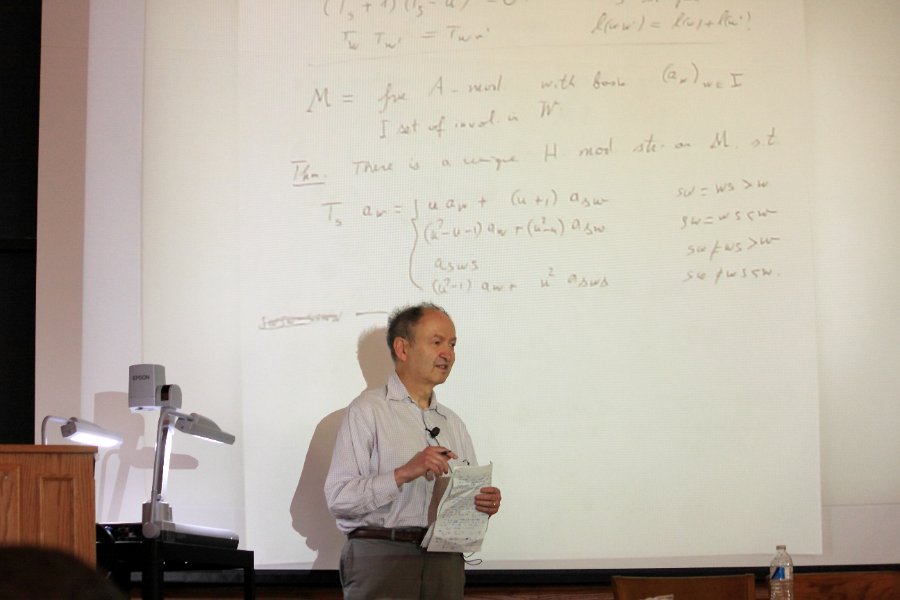 (T_s + 1)(T_s - u) = 0
T_w T_w' = T_ww' l(ww') = l(w) + l(w')
M = free A-mod with basis (a_w)_{w∈I}
I set of invol. in W.
Thm. There is a unique H mod str. on M s.t.
T_s a_w = { u a_w + (u+1) a_sw sw = ws > w
(u²-u-1) a_w + (u²-u) a_sw sw = ws < w
a_sws sw ≠ ws > w
(u²-1) a_w + u² a_sws sw ≠ ws < w.
EPSON